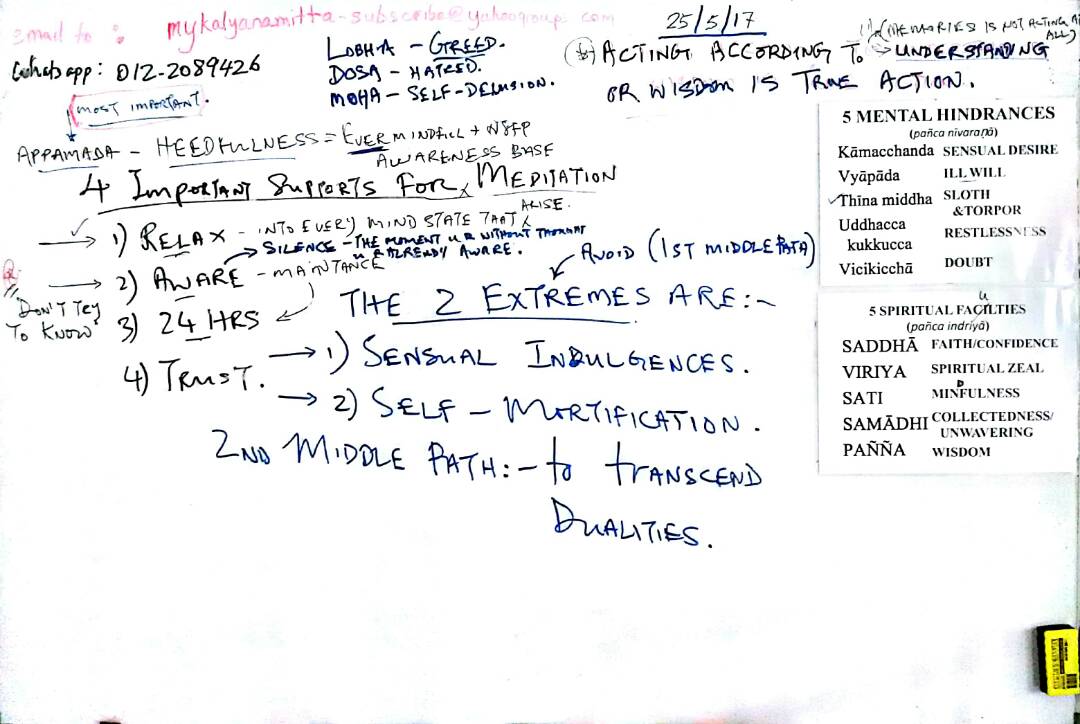 email to : mykalyanamitta-subscribe@yahoogroups com
Whatsapp: 012-2089426
LOBHA - GREED.
DOSA - HATRED.
MOHA - SELF-DELUSION.
25/5/17
(MEMORIES IS NOT ACTING AT ALL)
ACTING ACCORDING TO UNDERSTANDING
OR WISDOM IS TRUE ACTION.
MOST IMPORTANT.
APPAMADA - HEEDFULNESS = EVER MINDFULL +
AWARENESS BASE
4 IMPORTANT SUPPORTS FOR MEDITATION
ARISE.
1) RELAX - INTO EVERY MIND STATE THAT
SILENCE - THE MOMENT U R WITHOUT THOUGHT
U R ALREADY AWARE.
2) AWARE - MAINTANCE
DON'T TRY
TO KNOW
3) 24 HRS
4) TRUST.
AVOID (1ST MIDDLE PATH)
THE 2 EXTREMES ARE:-
1) SENSUAL INDULGENCES.
2) SELF - MORTIFICATION.
2ND MIDDLE PATH:- to TRANSCEND
DUALITIES.
5 MENTAL HINDRANCES
(pañca nīvaraṇā)
Kāmacchanda SENSUAL DESIRE
Vyāpāda ILL WILL
Thīna middha SLOTH
&TORPOR
Uddhacca
kukkucca RESTLESSNESS
Vicikicchā DOUBT
5 SPIRITUAL FACILTIES
u
(pañca indriyā)
SADDHĀ FAITH/CONFIDENCE
VIRIYA SPIRITUAL ZEAL
SATI MINFULNESS
D
SAMĀDHI COLLECTEDNESS/
UNWAVERING
PAÑÑA WISDOM